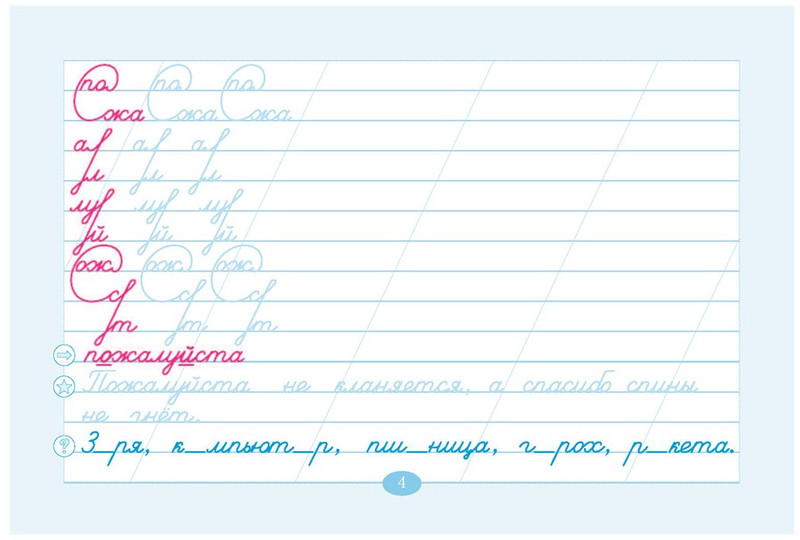 по по по
жа жа жа
ал ал ал
л л л
лу лу лу
й й й
ож ож ож
с с с
т т т
пожалуйста
Пожалуйста не кланяется, а спасибо спины
не гнёт.
З_ря, к_мпьют_р, пш_ница, г_рох, р_кета.
4